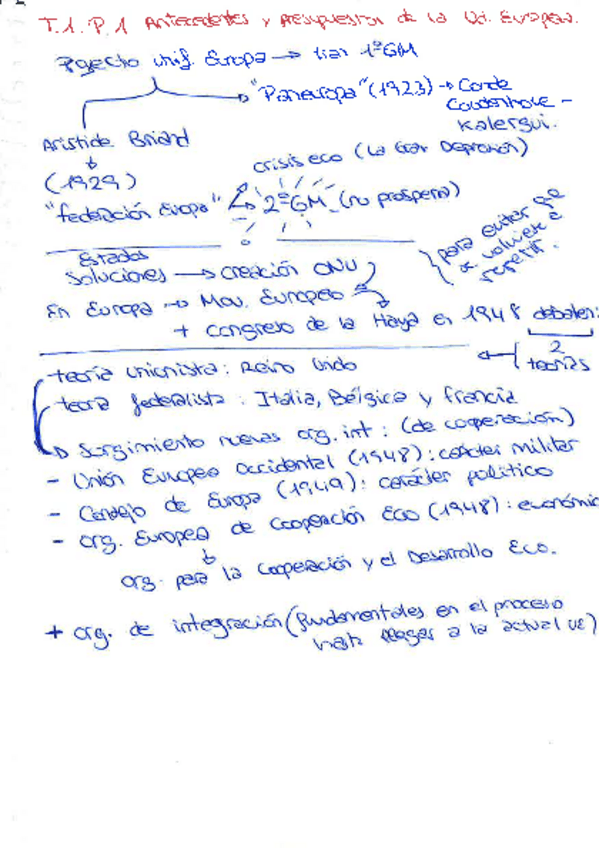 T.1. P.1 Antecedentes y presupuestos de la Un. Europea.
Pyecto unif. Europa → tras 1ªGM
"Paneuropa" (1923) → Conde
Coudenhove -
Kalergui.
Aristide Briand
(1929)
"federación Europa"
crisis eco (La Gran Depresión)
2ªGM (no prospera)
Estados
Soluciones → creación ONU
para evitar que
se volviese a
repetir.
En Europa → Mov. Europeo
+ Congreso de la Haya en 1948 debaten:
2
teorías
teoría unionista: Reino Unido
teoría federalista: Italia, Bélgica y Francia
Surgimiento nuevas org. int: (de cooperación)
- Unión Europeo Occidental (1948): carácter militar
- Consejo de Europa (1949): carácter político
- org. Europea de Cooperación Eco (1948): económic
org. para la Cooperación y el Desarrollo Eco.
+ org. de integración (fundamentales en el proceso
hasta llegar a la actual UE)